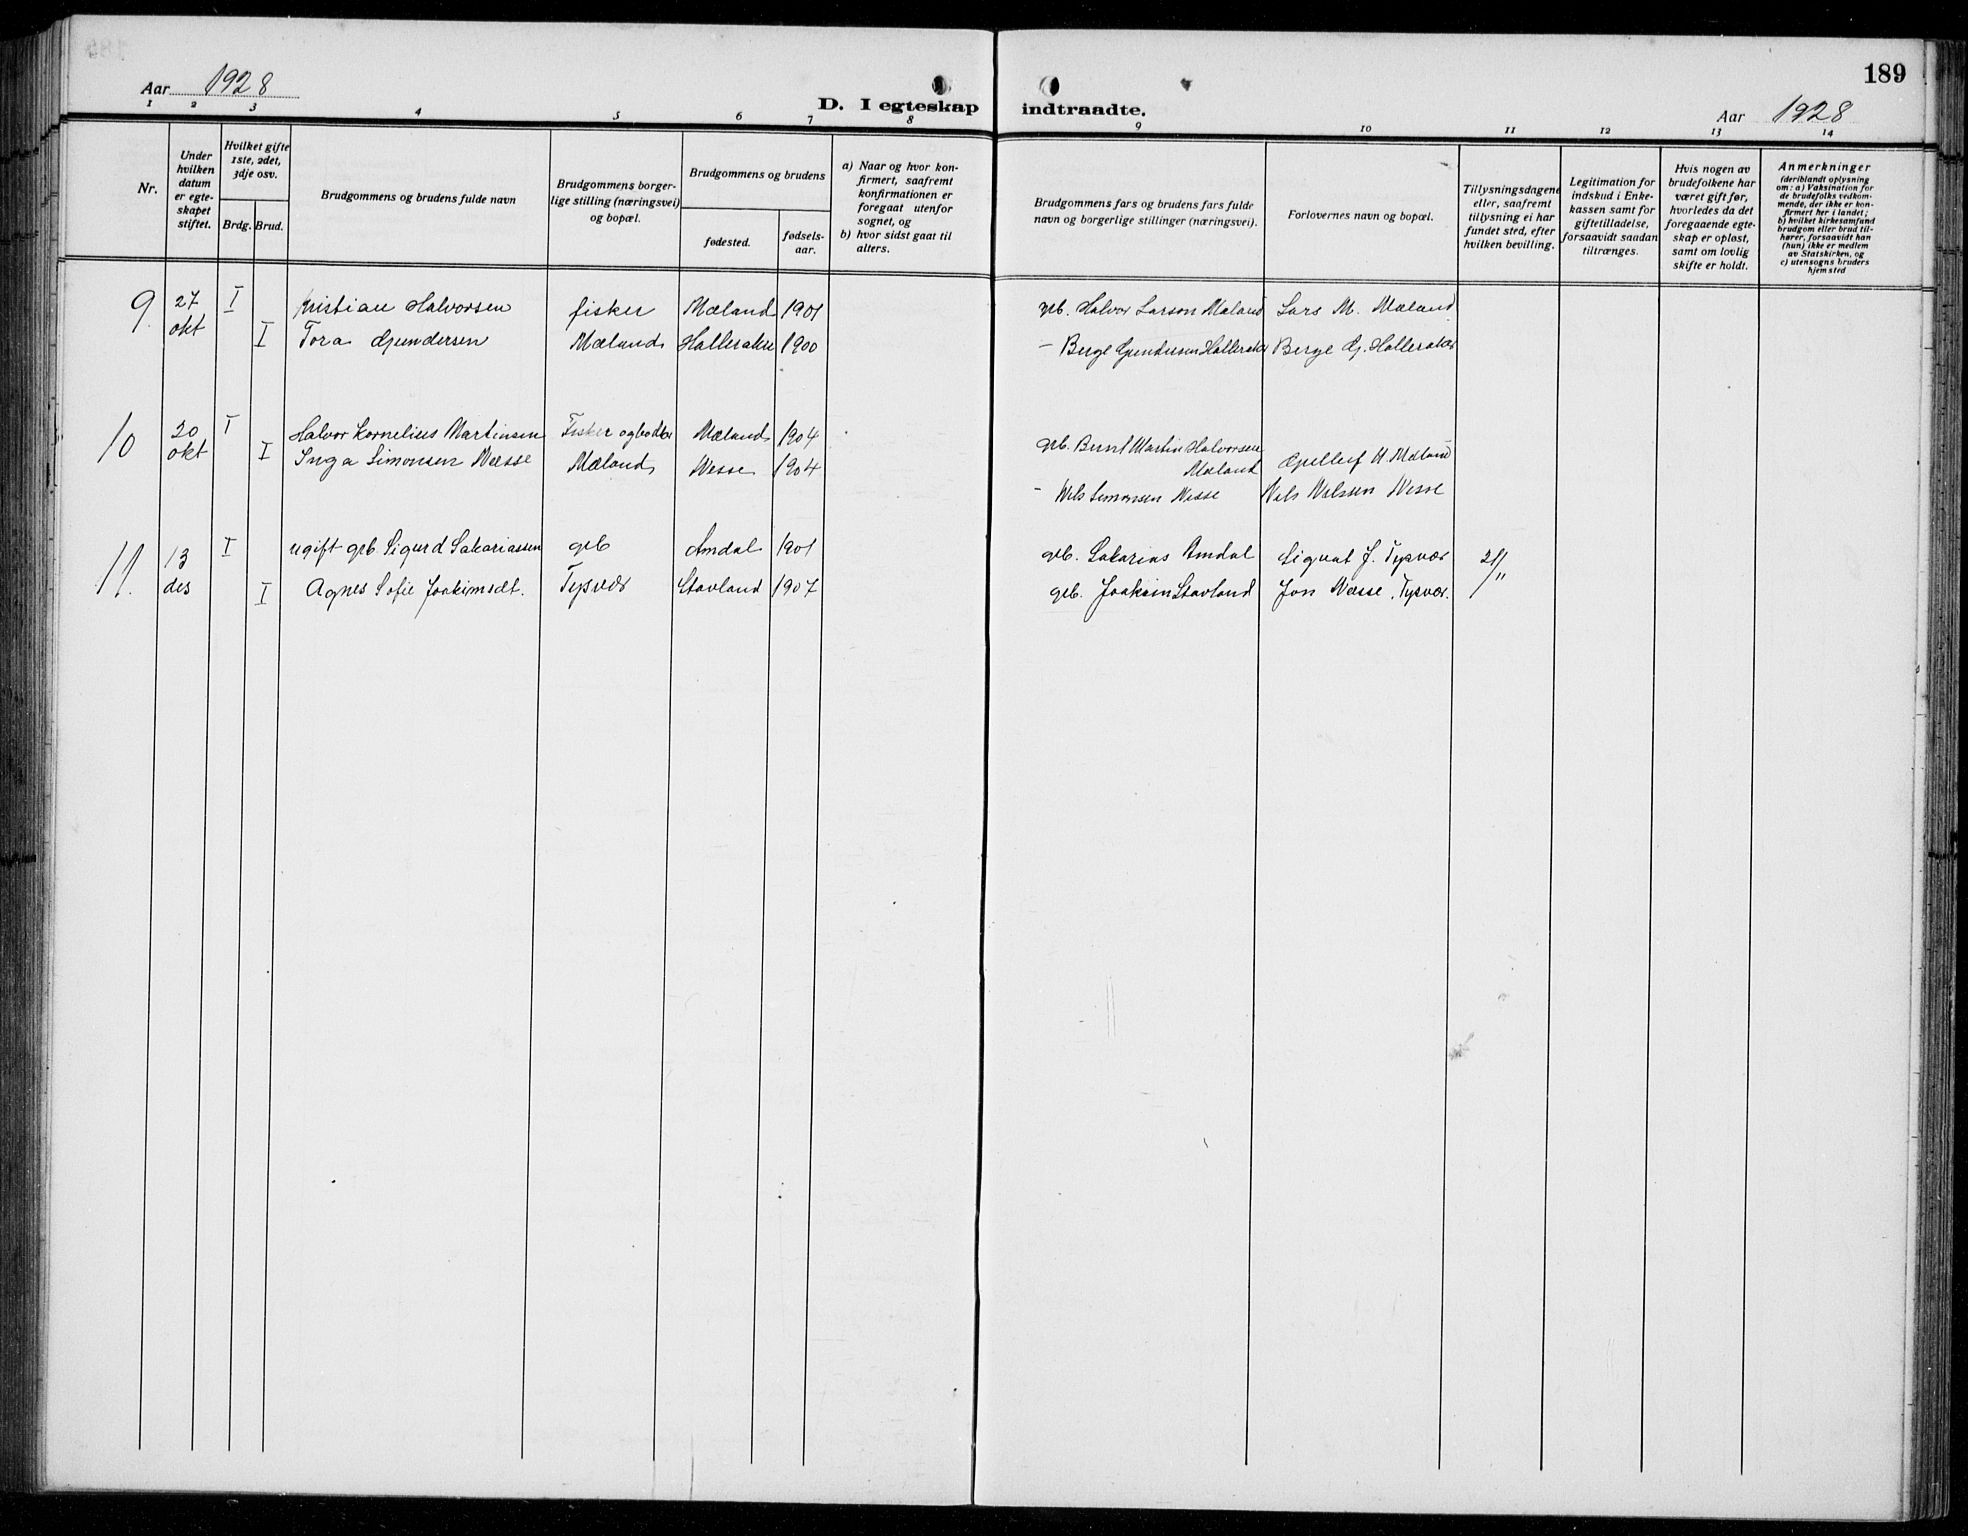 189
Aar 1928
D. I egteskap indtraadte.
Aar 1928
1 2 3 4 5 6 7 8 9 10 11 12 13 14
Nr.
Under
hvilken
datum
er egte-
skapet
stiftet.
Hvilket gifte
1ste, 2det,
3dje osv.
Brdg. Brud.
Brudgommens og brudens fulde navn
Brudgommens borger-
lige stilling (næringsvei)
og bopæl.
Brudgommens og brudens
fødested.
fødsels-
aar.
a) Naar og hvor kon-
firmert, saafremt
konfirmationen er
foregaat utenfor
sognet, og
b) hvor sidst gaat til
alters.
Brudgommens fars og brudens fars fulde
navn og borgerlige stillinger (næringsvei).
Forlovernes navn og bopæl.
Tillysningsdagene
eller, saafremt
tillysning ei har
fundet sted, efter
hvilken bevilling.
Legitimation for
indskud i Enke-
kassen samt for
giftetilladelse,
forsaavidt saadan
tiltrænges.
Hvis nogen av
brudefolkene har
været gift før,
hvorledes da det
foregaaende egte-
skap er opløst,
samt om lovlig
skifte er holdt.
Anmerkninger
(deriblandt oplysning
om: a) Vaksination for
de brudefolks vedkom-
mende, der ikke er kon-
firmert her i landet;
b) hvilket kirkesamfund
brudgom eller brud til-
hører, forsaavidt han
(hun) ikke er medlem
av Statskirken, og
c) utensogns bruders
hjemsted
9. 27 I Kristian Halvorsen fisker Mæland 1901 grb. Halvor Larson Mæland Lars M. Mæland
okt I Tora Gundersen Mæland Halleraker 1900 - Berge Gundersen Halleraker Berge G. Halleraker
10 20 I Halvor Kornelius Martinsen Fisker og Mæland 1904 grb. Bernt Martin Halvorsen
okt I Inga Simonsen Næsse Mæland Nesse 1904 Mæland H. Mæland
- Nils Simonsen Nesse Nils Nilssen Nesse
11. 13 I ugift grb Sigurd Sakariassen grb Amdal 1901 grb. Sakarias Amdal Sigvat J. Tysvær 21/11
des I Agnes Sofie Joakimsdt. Tysvær Stavland 1907 grb. Joakim Stavland Jon Næsse, Tysvær.